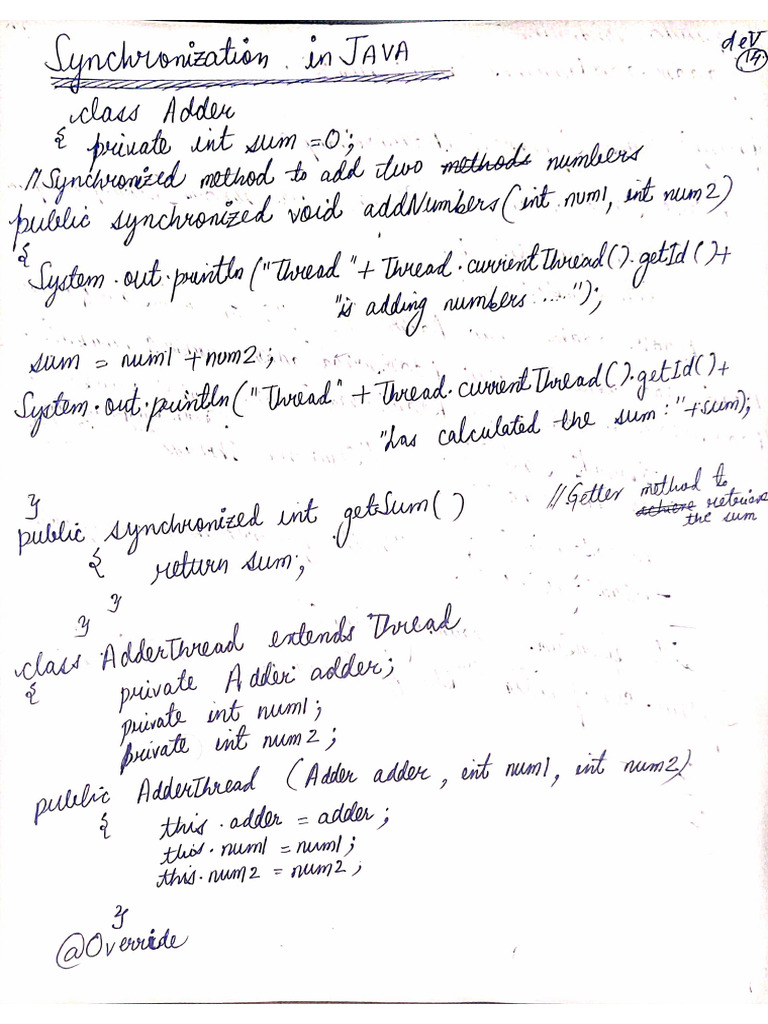 Synchronization in JAVA
deV
14
class Adder
{ private int sum =0;
//Synchronized method to add two methods numbers
public synchronized void addNumbers(int num1, int num2)
{
System.out.println("Thread "+ Thread.currentThread().getId()+
"is adding numbers ....");
sum = num1 +num2;
System.out.println("Thread" + Thread.currentThread().getId()+
"has calculated the sum:"+sum);
}
public synchronized int getSum() //Getter method to
retrieve
the sum
{ return sum;
}
}
class AdderThread extends Thread
{ private Adder adder;
private int num1;
private int num2;
public AdderThread (Adder adder, int num1, int num2)
{ this.adder = adder;
this.num1 = num1;
this.num2 = num2;
}
@Override